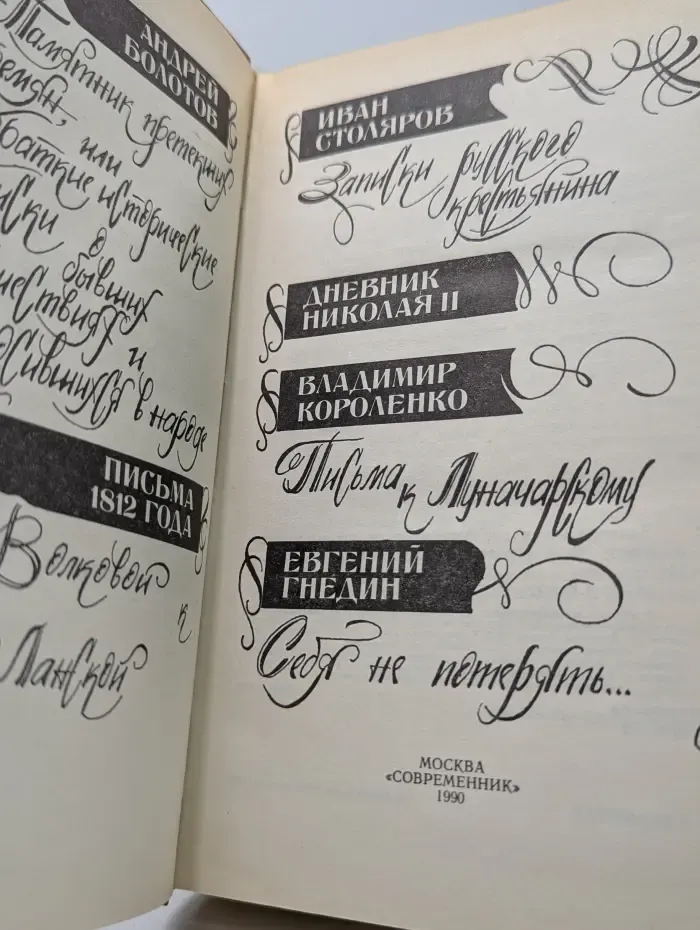 АНДРЕЙ
БОЛОТОВ
Памятник претекших
или
Краткие исторические
о
бывших
и
носившихся в народе
ПИСЬМА
1812 ГОДА
Волковой
к
Ланской
ИВАН
СТОЛЯРОВ
Записки русского
крестьянина
ДНЕВНИК
НИКОЛАЯ II
ВЛАДИМИР
КОРОЛЕНКО
Письма к Луначарскому
ЕВГЕНИЙ
ГНЕДИН
Себя не потерять...
МОСКВА
«СОВРЕМЕННИК»
1990